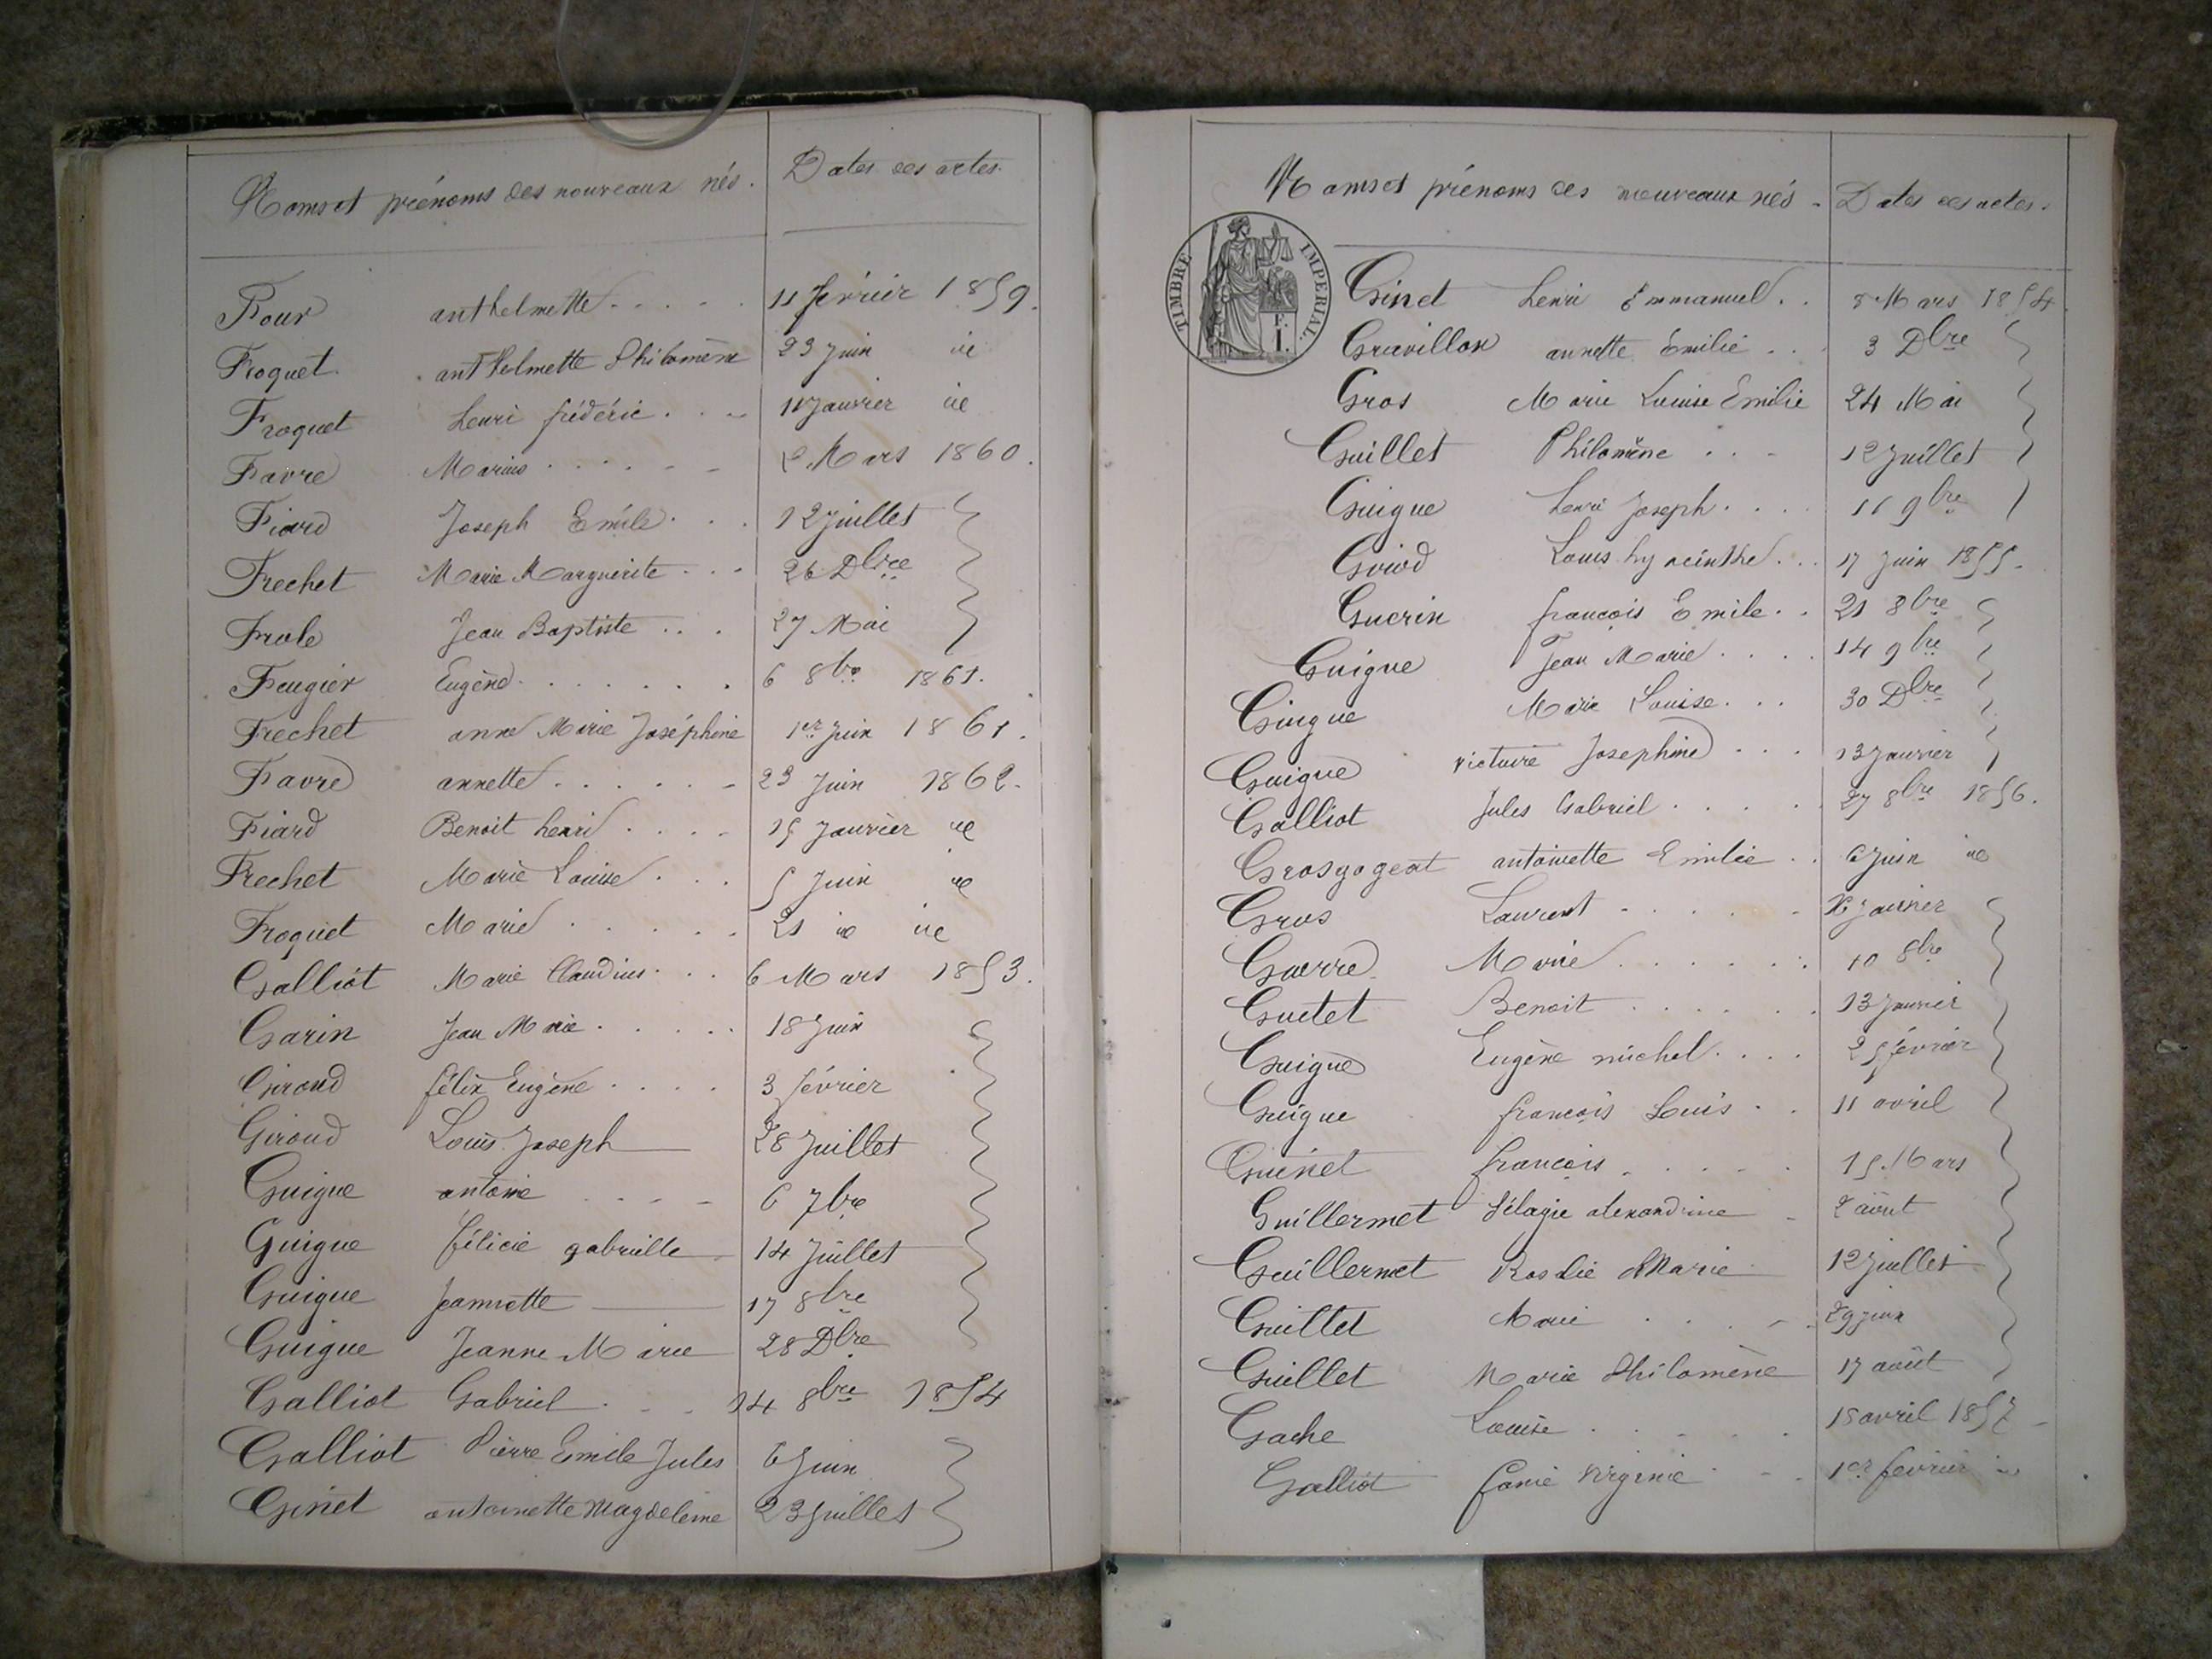 Noms et prénoms des nouveaux nés. Dates des actes.
Four anthelmette 11 février 1859.
Froquet anthelmette Philomène 23 Juin id
Froquet henri frédéric 11 Janvier id
Favre Marius 2 Mars 1860.
Fiard Joseph Emile 12 Juillet
Frechet Marie Marguerite 26 Dbre
Frole Jean Baptiste 27 Mai
Feugier Eugène 6 8bre 1861.
Frechet anne Marie Joséphine 1er Juin 1861.
Favre annette 23 Juin 1862.
Fiard Benoit henri 15 Janvier id
Frechet Marie Louise 5 Juin id
Froquet Marie 21 id id
Galliot Marie Claudius 6 Mars 1853.
Garin Jean Marie 18 Juin
Giroud félix Eugène 3 février
Giroud Louis Joseph 28 Juillet
Guigue antoine 6 7bre
Guigue félicie gabrielle 14 Juillet
Guigue Jeannette 17 8bre
Guigue Jeanne Marie 28 Dbre
Galliot Gabriel 14 8bre 1854
Galliot Pierre Emile Jules 6 Juin
Ginet antoinette Magdeleine 23 Juillet
Noms et prénoms des nouveaux nés. Dates des actes.
TIMBRE IMPERIAL.
Ginet henri Emmanuel 8 Mars 1854
Gravillon annette Émilie 3 Dbre
Gros Marie Louise Emilie 24 Mai
Guillet Philomène 12 Juillet
Guigue henri Joseph 11 9bre
Louis hyacinthe 17 Juin 1855.
Guerin françois Emile 21 8bre
Guigue Jean Marie 14 9bre
Guigue Marie Louise 30 Dbre
Guigue victoire Josephine 13 Janvier
Galliot Jules Gabriel 27 8bre 1856.
Grosgogeat antoinette Emilie 6 Juin id
Gros Laurent Janvier
Guerre Marie 10 8bre
Guetet Benoit 13 Janvier
Guigue Eugène michel 25 février
Guigue françois Louis 11 avril
Guinet françois 15 Mars
Guillermet Pélagie alexandrine 2 août
Guillermet Rosalie Marie 12 juillet
Guillet Marie 29 juin
Guillet Marie Philomène 17 août
Gache Louise 15 avril 1857
Galliot fanie Virginie 1er février id